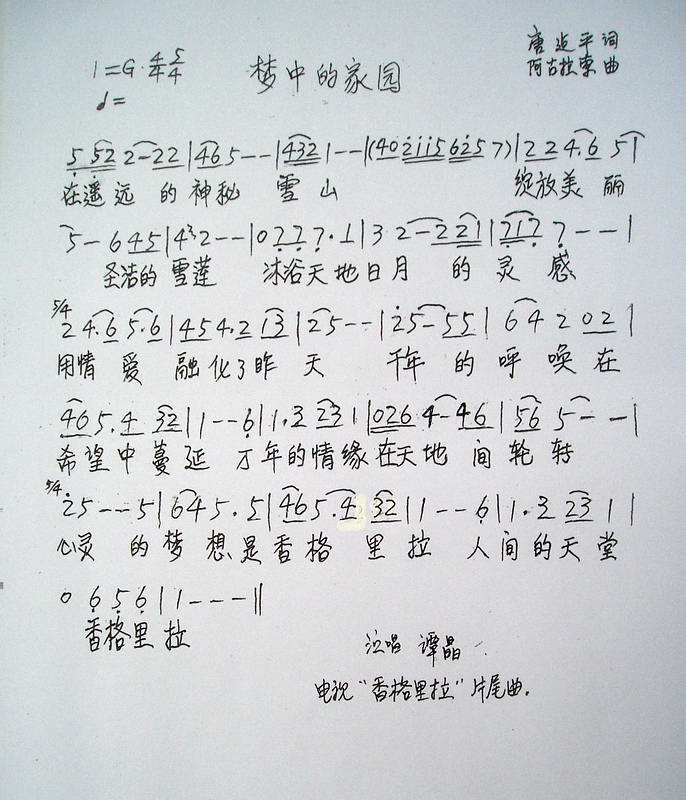 1=G 4/4 5/4 梦中的家园 唐 平词
♩= 阿古拉泰曲
5 52 2-22|465--|4321--|(4021156257)|224.6 51
在遥远 的神秘 雪山 绽放美丽
5-645|432--|0777.1|32-221|7177--|
圣洁的雪莲 沐浴天地日月 的灵感
5/4 24.65.6|454.213|25--|25-55|64202|
用情爱 融化了昨天 千年的呼唤在
465.4 32|1--6|1.3231|0264-46|565--|
希望中蔓延 万年的情缘在天地间轮转
5/4 25--5|645.5|465.4 32|1--6|1.32311|
心灵的梦想是香格里拉 人间的天堂
0656|1---‖
香格里拉
演唱 谭晶
电视“香格里拉”片尾曲.